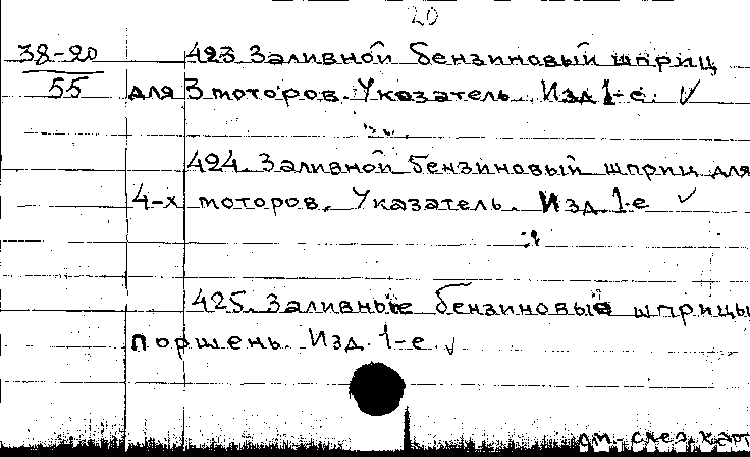 20
38-20
55
423 Заливной бензиновый шприц
для 3 моторов. Указатель. Изд 1-е. ✓
424. Заливной бензиновый шприц для
4-х моторов. Указатель. Изд. 1-е ✓
425. Заливные бензиновые шприцы
поршень. Изд. 1-е ✓
см.- след. карт